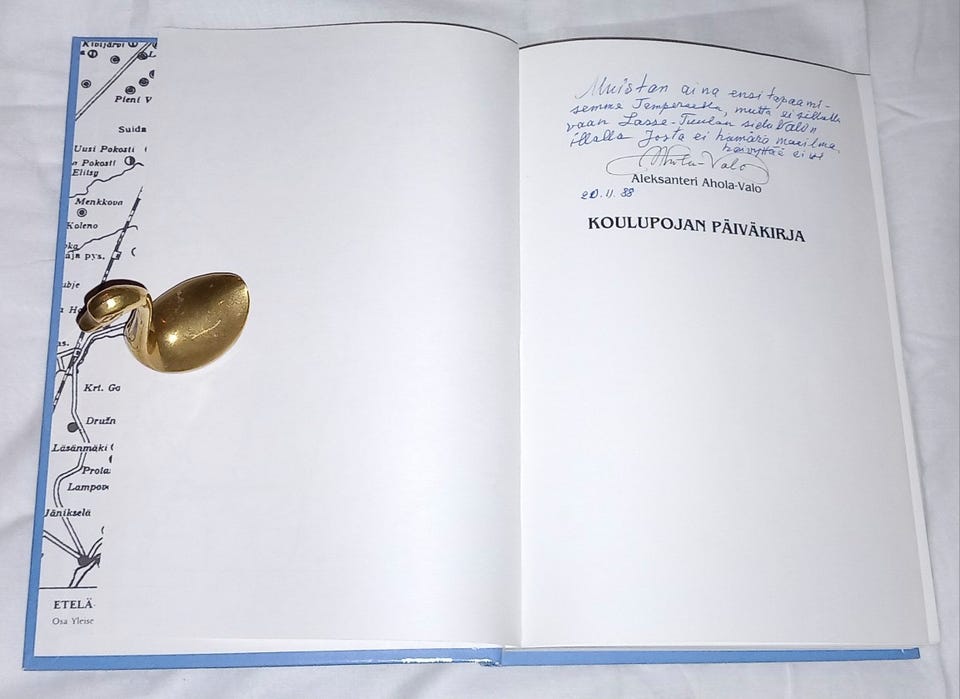 Kivijärvi
Pieni V
Suida
Uusi Pokosti
Pokosti
Elitsy
Menkkova
Koleno
oka
aja pys.
ubje
a Ha
as.
Krt. Go
Družn
Läsänmäki
Prola
Lampov
Jänikselä
ETELÄ
Osa Yleise
Muistan aina ensi tapaami-
semme Tampereella, mutta ei sillalla
vaan Lasse-Tuulan
illalla. Josta ei hämärä maailma,
Ahola-Valo
Aleksanteri Ahola-Valo
20.11.88
KOULUPOJAN PÄIVÄKIRJA